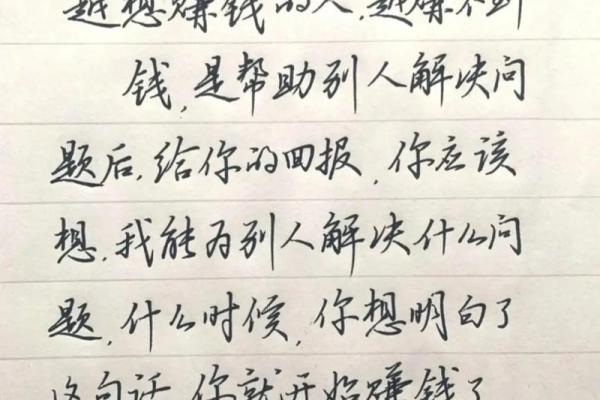 越想赚钱的人,越赚不到
钱,是帮助别人解决问
题后,给你的回报,你应该
想,我能为别人解决什么问
题,什么时候,你想明白了
这句话,你就开始赚钱了